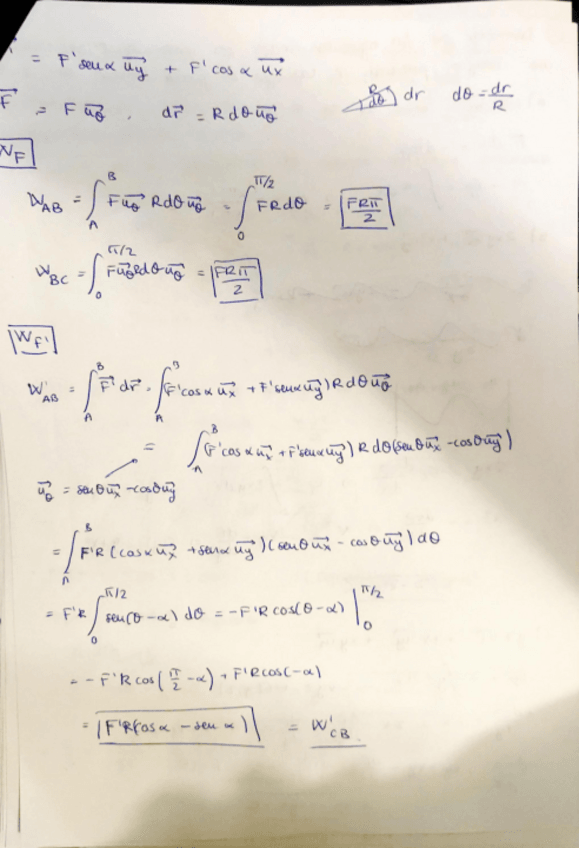 = F' sen α u⃗y + F' cos α u⃗x
F⃗ = F u⃗θ , dr⃗ = R dθ u⃗θ   R dθ dr   dθ = dr/R
WF
WAB = ∫_A^B F u⃗θ R dθ u⃗θ = ∫_0^{π/2} F R dθ = FRπ/2
WBC = ∫_0^{π/2} F u⃗θ R dθ u⃗θ = FRπ/2
WF'
W'AB = ∫_A^B F⃗' dr⃗ = ∫_A^B (F' cos α u⃗x + F' sen α u⃗y) R dθ u⃗θ
= ∫_A^B (F' cos α u⃗x + F' sen α u⃗y) R dθ (sen θ u⃗x - cos θ u⃗y)
u⃗θ = sen θ u⃗x - cos θ u⃗y
= ∫_A^B F'R (cos α u⃗x + sen α u⃗y)(sen θ u⃗x - cos θ u⃗y) dθ
= F'R ∫_0^{π/2} sen(θ-α) dθ = -F'R cos(θ-α) |_0^{π/2}
= - F'R cos(π/2 - α) + F'R cos(-α)
= F'R(cos α - sen α) = W'CB